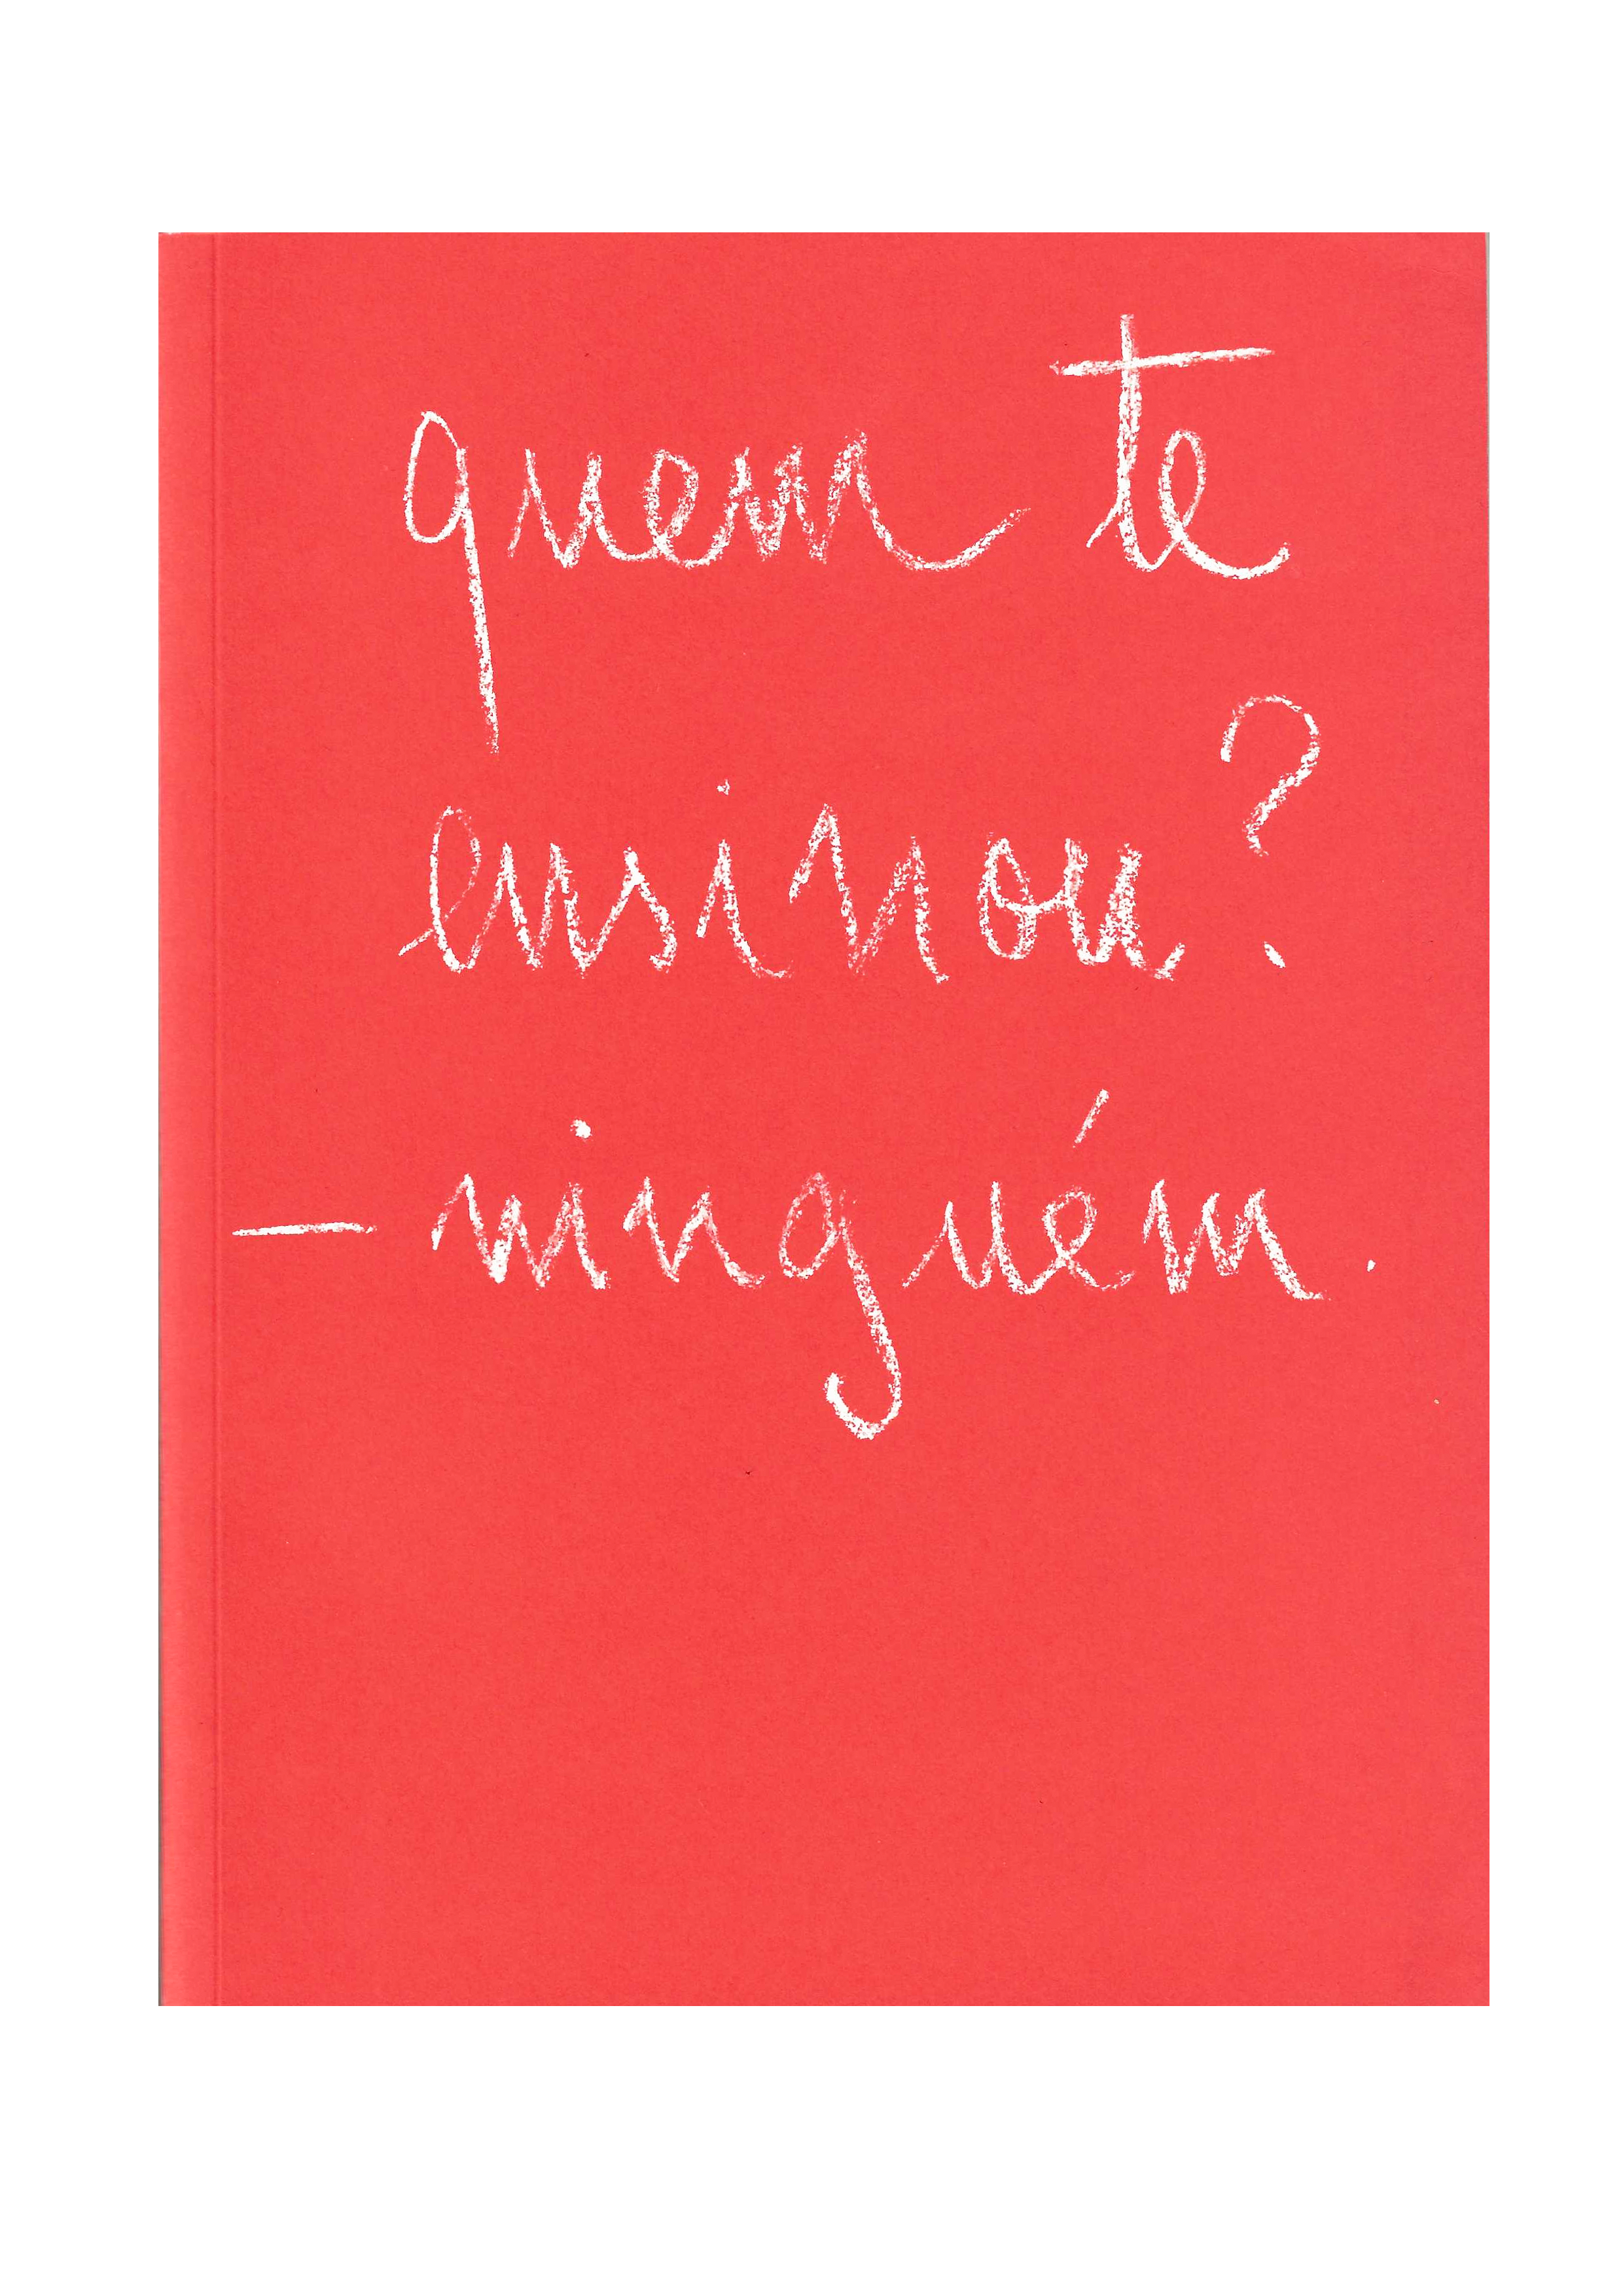 quem te
ensinou?
— ninguém.